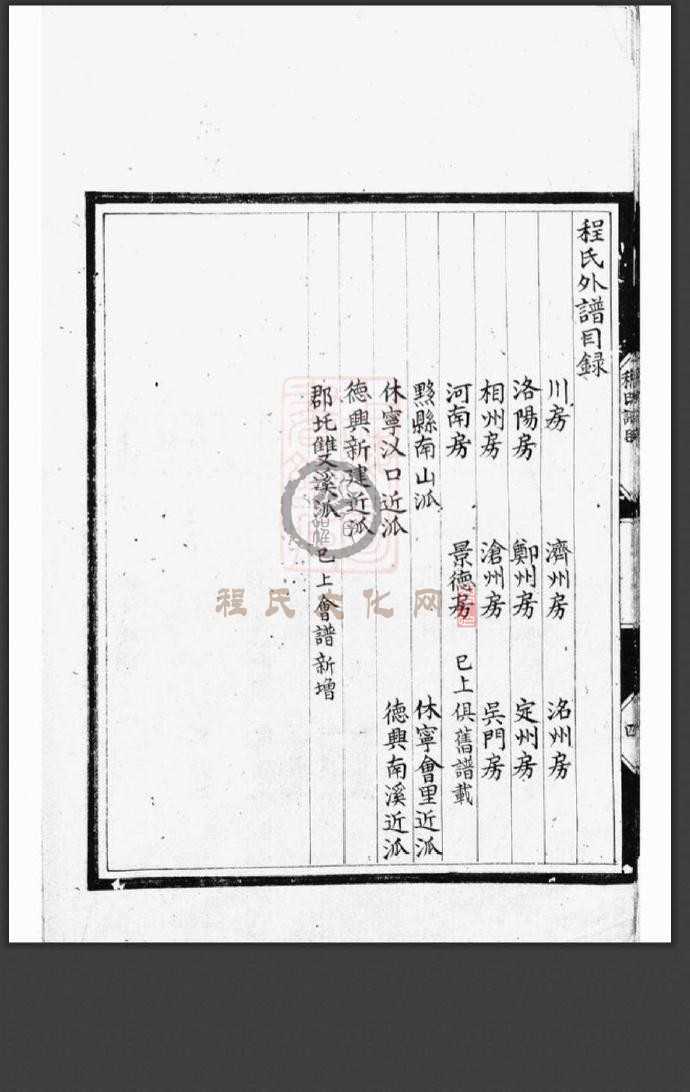 程氏外譜目錄
川房 濟州房 洺州房
洛陽房 鄭州房 定州房
相州房 滄州房 吳門房
河南房 景德房 已上俱舊譜載
黟縣南山派 休寧會里近派
休寧汊口近派 德興南溪近派
德興新建近派
郡圫雙溪派 已上會譜新增
四
程氏文化网